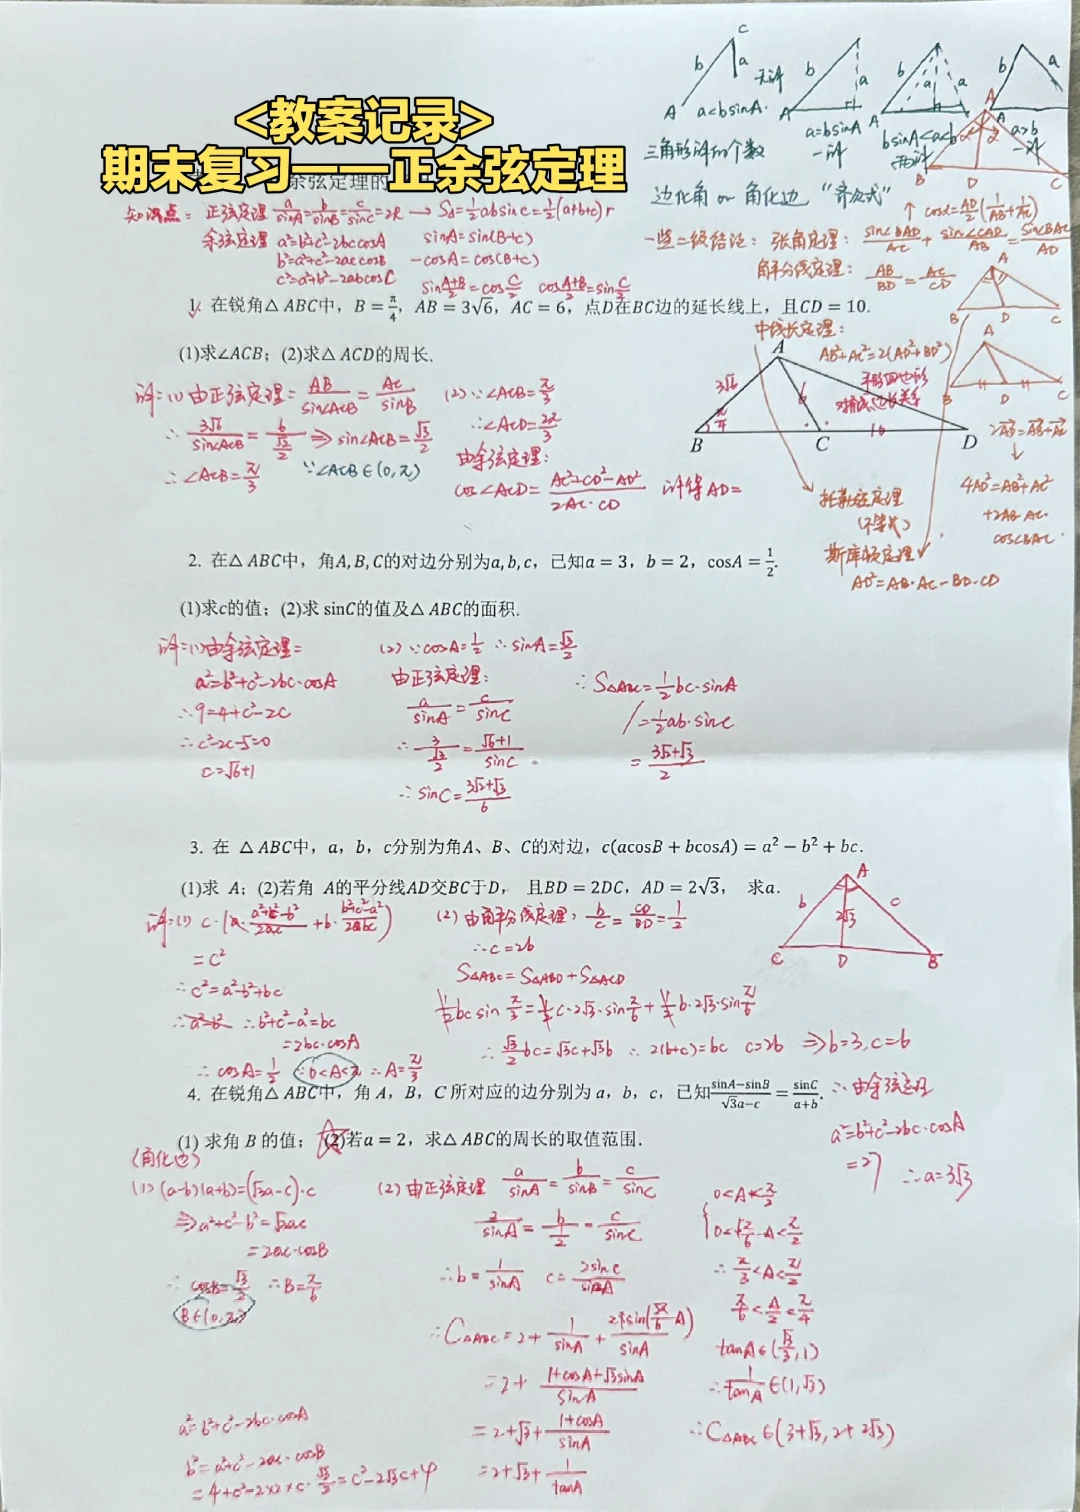 <教案记录>
期末复习——正余弦定理
余弦定理的
知识点：正弦定理 a/sinA=b/sinB=c/sinC=2R → S△=1/2absinC=1/2(a+b+c)r
余弦定理 a²=b²+c²-2bccosA sinA=sin(B+C)
b²=a²+c²-2accosB -cosA=cos(B+C)
c²=a²+b²-2abcosC sin(A+B)/2=cosC/2 cos(A+B)/2=sinC/2
C
b a 无解
A a<bsinA.
b a
A a=bsinA
一解
b a a
A bsinA<a<b
两解
b a
A a>b
一解
三角形解的个数
边化角 or 角化边 “齐次式”
A
B D C
↑ cosα=AD/2(1/AB+1/AC)
一些二级结论：张角定理：sin∠BAD/AC+sin∠CAD/AB=sin∠BAC/AD
角平分线定理：AB/BD=AC/CD
A
B D C
中线长定理：
AB²+AC²=2(AD²+BD²)
平行四边形
对角线边长关系
A
B D C
2AD=AB+AC
↓
4AD²=AB²+AC²
+2AB·AC·
cos∠BAC.
托勒密定理
(不等式)
斯库顿定理
AD²=AB·AC-BD·CD
1. 在锐角△ABC中，B=π/4，AB=3√6，AC=6，点D在BC边的延长线上，且CD=10.
(1)求∠ACB；(2)求△ACD的周长.
A
3√6 6
π/4
B C 10 D
解：(1)由正弦定理：AB/sin∠ACB=AC/sinB
∴3√6/sin∠ACB=6/(√2/2) ⇒ sin∠ACB=√3/2
∴∠ACB=π/3 ∵∠ACB∈(0,π)
(2)∵∠ACB=π/3
∴∠ACD=2π/3
由余弦定理：
cos∠ACD=(AC²+CD²-AD²)/2AC·CD 解得AD=
2. 在△ABC中，角A,B,C的对边分别为a,b,c，已知a=3，b=2，cosA=1/2.
(1)求c的值；(2)求 sinC的值及△ABC的面积.
解：(1)由余弦定理：
a²=b²+c²-2bc·cosA
∴9=4+c²-2c
∴c²-2c-5=0
c=√6+1
(2)∵cosA=1/2 ∴sinA=√3/2
由正弦定理：
a/sinA=c/sinC
∴3/(√3/2)=(√6+1)/sinC
∴sinC=(3√2+√3)/6
∴S△ABC=1/2bc·sinA
=1/2ab·sinC
=(3√2+√3)/2
3. 在 △ABC中，a，b，c分别为角A、B、C的对边，c(acosB+bcosA)=a²-b²+bc.
(1)求 A；(2)若角 A的平分线AD交BC于D， 且BD=2DC，AD=2√3， 求a.
A
b c
2√3
C D B
解：(1) c·(a·(a²+c²-b²)/2ac+b·(b²+c²-a²)/2bc)
=c²
∴c²=a²-b²+bc
∴b²+c²-a²=bc
=2bc·cosA
∴cosA=1/2 ∵0<A<π ∴A=π/3
(2)由角平分线定理：b/c=CD/BD=1/2
∴c=2b
S△ABC=S△ABD+S△ACD
1/2bcsinπ/3=1/2c·2√3·sinπ/6+1/2b·2√3·sinπ/6
∴√3/2bc=√3c+√3b ∴2(b+c)=bc c=2b ⇒b=3,c=6
∴由余弦定理
a²=b²+c²-2bc·cosA
=27 ∴a=3√3
4. 在锐角△ABC中，角 A，B，C 所对应的边分别为 a，b，c，已知(sinA−sinB)/(√3a−c)=sinC/(a+b).
(1) 求角 B 的值；(2)若a=2，求△ABC的周长的取值范围.
(角化边)
(1) (a-b)(a+b)=(√3a-c)·c
⇒a²+c²-b²=√3ac
=2ac·cosB
∴cosB=√3/2 ∴B=π/6
B∈(0,π)
(2)由正弦定理 a/sinA=b/sinB=c/sinC
2/sinA=b/(1/2)=c/sinC
∴b=1/sinA c=2sinC/sinA
∴C△ABC=2+1/sinA+2sin(5π/6-A)/sinA
=2+(1+cosA+√3sinA)/sinA
=2+√3+(1+cosA)/sinA
=2+√3+1/tanA
0<A<π/2
0<5π/6-A<π/2
∴π/3<A<π/2
π/6<A/2<π/4
tanA∈(√3/3,1)
∴1/tanA∈(1,√3)
∴C△ABC∈(3+√3,2+2√3)
a²=b²+c²-2bc·cosA
b²=a²+c²-2ac·cosB
=4+c²-2×2×c·√3/2=c²-2√3c+4